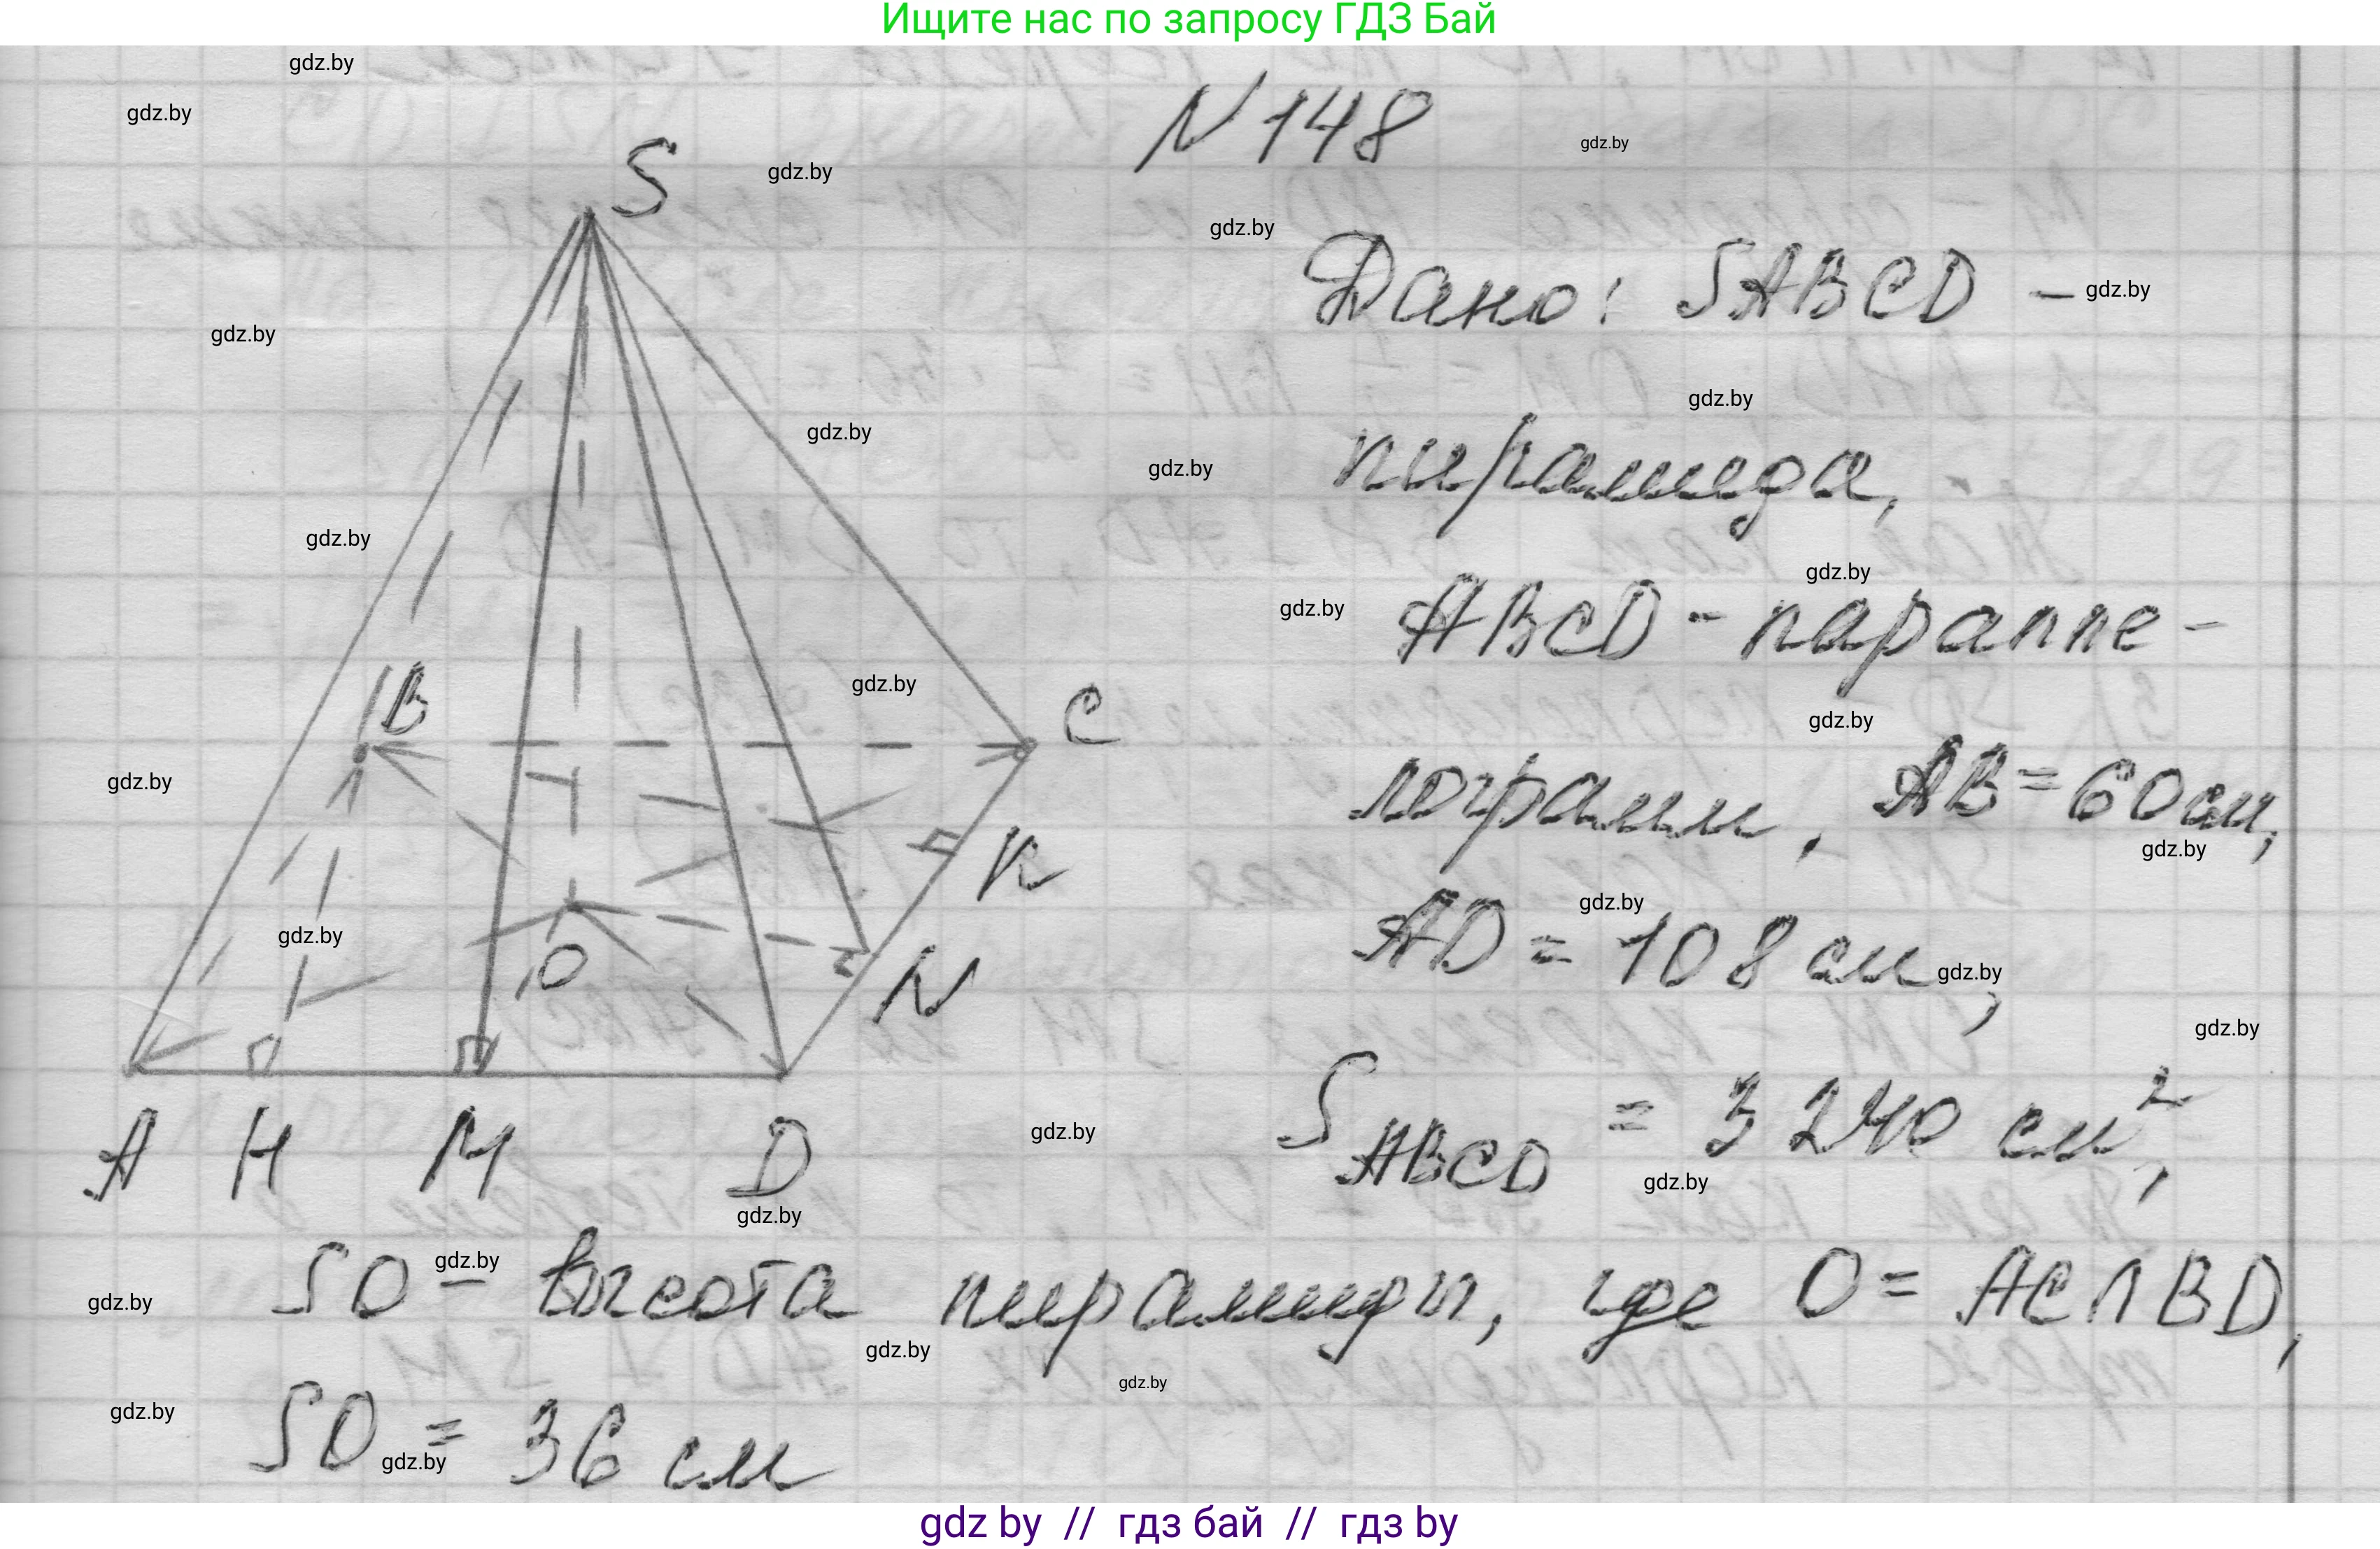 Ищите нас по запросу ГДЗ Бай
gdz.by
gdz.by
N 148
gdz.by
S
gdz.by
gdz.by
Дано: SABCD –
gdz.by
gdz.by
gdz.by
gdz.by
gdz.by
пирамида,
gdz.by
gdz.by
gdz.by
ABCD - паралле-
gdz.by
B
C
gdz.by
gdz.by
лограмм, AB = 60 см,
gdz.by
K
gdz.by
gdz.by
O
N
AD = 108 см,
gdz.by
gdz.by
A H M D
gdz.by
S ABCD = 3240 см²,
gdz.by
gdz.by
gdz.by
SO – высота пирамиды, где O = AC∩BD,
gdz.by
gdz.by
gdz.by
gdz.by
SO = 36 см
gdz.by
gdz by // гдз бай // гдз by